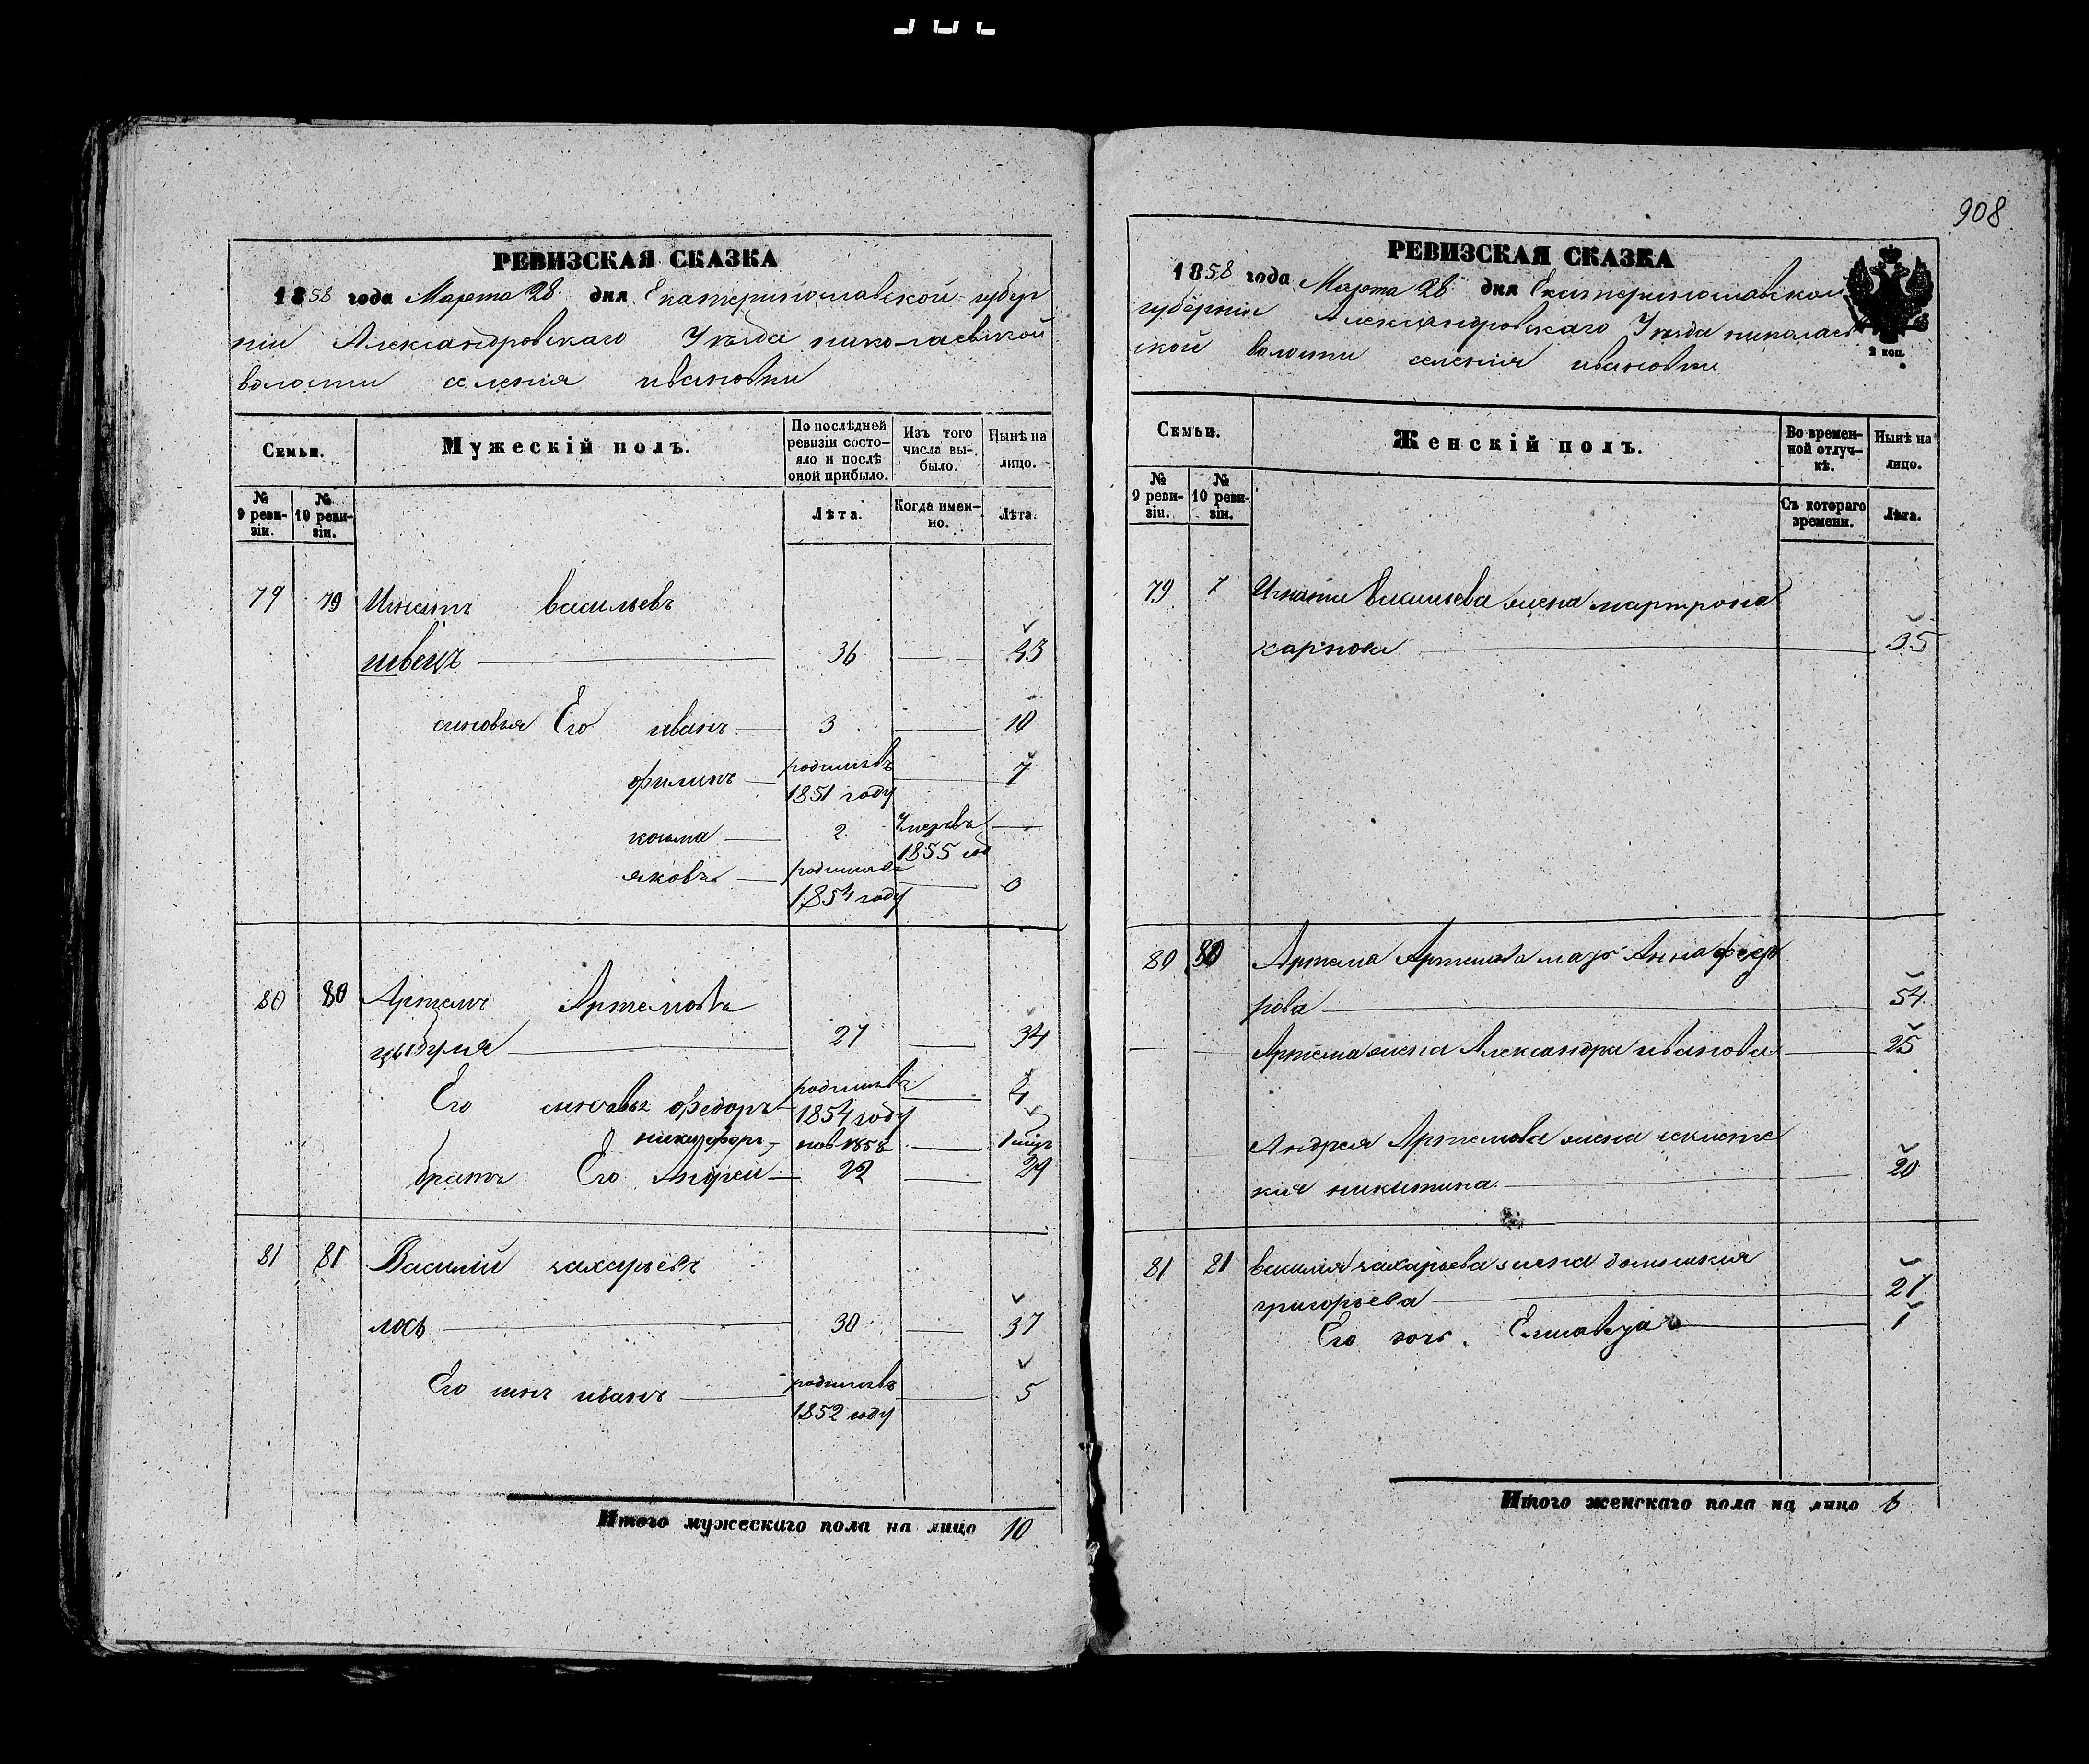 908
РЕВИЗСКАЯ СКАЗКА
1858 года Марта 28 дня Екатеринославской губер
ніи Александровскаго Уѣзда николаевской
волости селенія ивановки
Семьи.
Мужескій полъ.
По послѣдней ревизіи состо-
яло и послѣ оной прибыло.
Изъ того числа вы-
было.
Нынѣ на лицо.
№ 9 реви-
зіи.
№ 10 реви-
зіи.
Лѣта.
Когда имен-
но.
Лѣта.
79 79 Игнатъ васильевъ
швецъ 36 43
синовья Его иванъ 3 10
филипъ родился 1851 году 7
козьма 2 Умеръ 1855 год
яковъ родился 1854 году
80 80 Артемъ Артемовъ
цыбуля 27 34
Его синовья федоръ родился 1854 году 4
никифоръ нов 1858
братъ Его Андрей 22 29
81 81 Василій захарьевъ
лось 30 37
Его синъ иванъ родился 1852 году 5
Итого мужескаго пола на лицо 10
РЕВИЗСКАЯ СКАЗКА
1858 года Марта 28 дня Екатеринославской
губерніи Александровскаго Уѣзда николаев
ской волости селенія ивановки
2 коп.
Семьи.
Женскій полъ.
Во времен-
ной отлуч-
кѣ.
Нынѣ на лицо.
№ 9 реви-
зіи.
№ 10 реви-
зіи.
Съ котораго времени.
Лѣта.
79 7 Игната Васильева жена матрона
карпова 35
80 80 Артема Артемова мать Анна федо
рова 54
Артема жена Александра иванова 25
Андрея Артемова жена
кия никитина 20
81 21 василия захарьева жена домникия
григорьева 27
Его дочь Елисавета 1
Итого женскаго пола на лицо 6